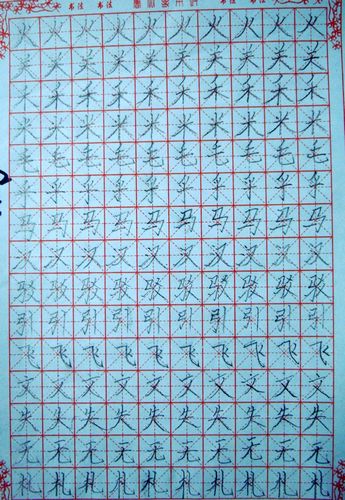 书法 书法 书法 书法
火火火火火火火火火火
关关关关关关关关关关
禾禾禾禾禾禾禾禾禾禾
米米米米米米米米米米
毛毛毛毛毛毛毛毛毛毛
乎乎乎乎乎乎乎乎乎乎
马马马马马马马马马马
汉汉汉汉汉汉汉汉汉汉
驳驳驳驳驳驳驳驳驳驳
引引引引引引引引引引
飞飞飞飞飞飞飞飞飞飞
文文文文文文文文文文
失失失失失失失失失失
无无无无无无无无无无
札札札札札札札札札札